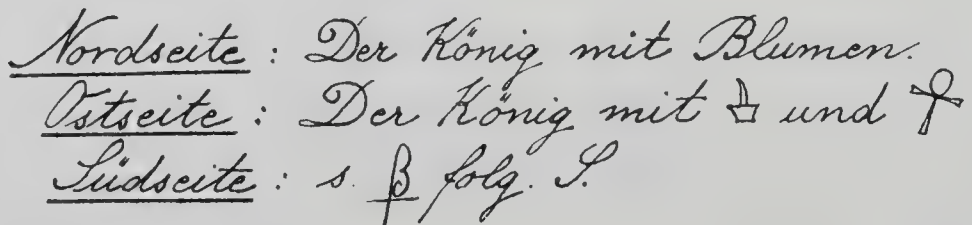 Nordseite : Der König mit Blumen.
Ostseite : Der König mit und
Südseite : s. β folg. S.